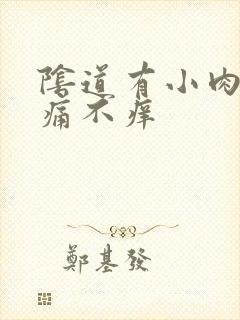 陰道有小肉
痛不癢
鄭基發